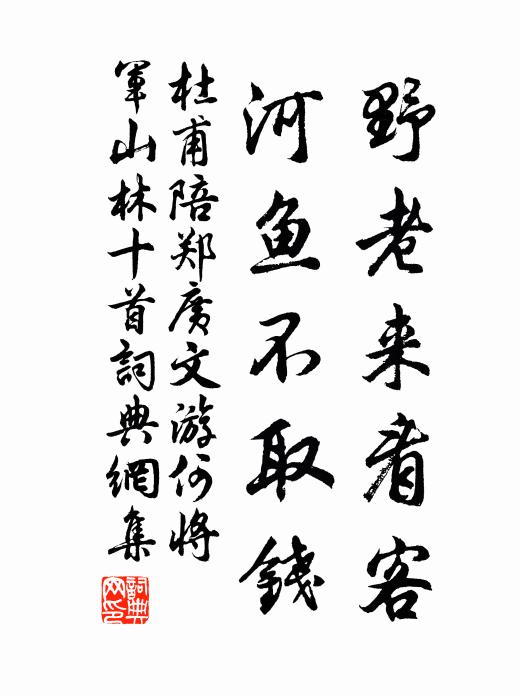 野老来看客
河鱼不取錢
杜甫陪郑廣文游何將
軍山林十首詞典網集
詞典网印